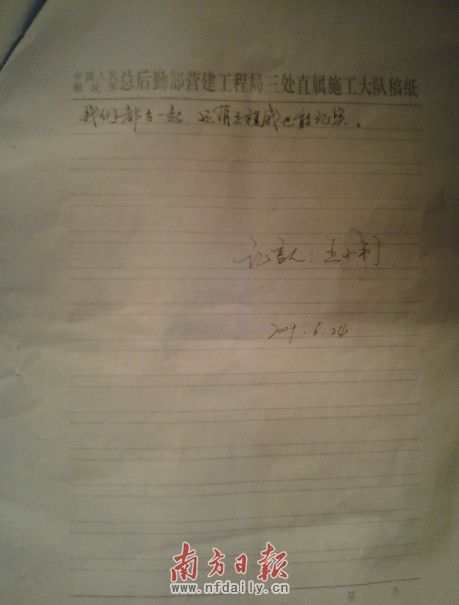 中国人民
解放军 总后勤部营建工程局三处直属施工大队稿纸
我们都在一起，还有王祖成也能证实。
证言人：王小利
2009.6.24
第 页
南方日报
www.nfdaily.cn